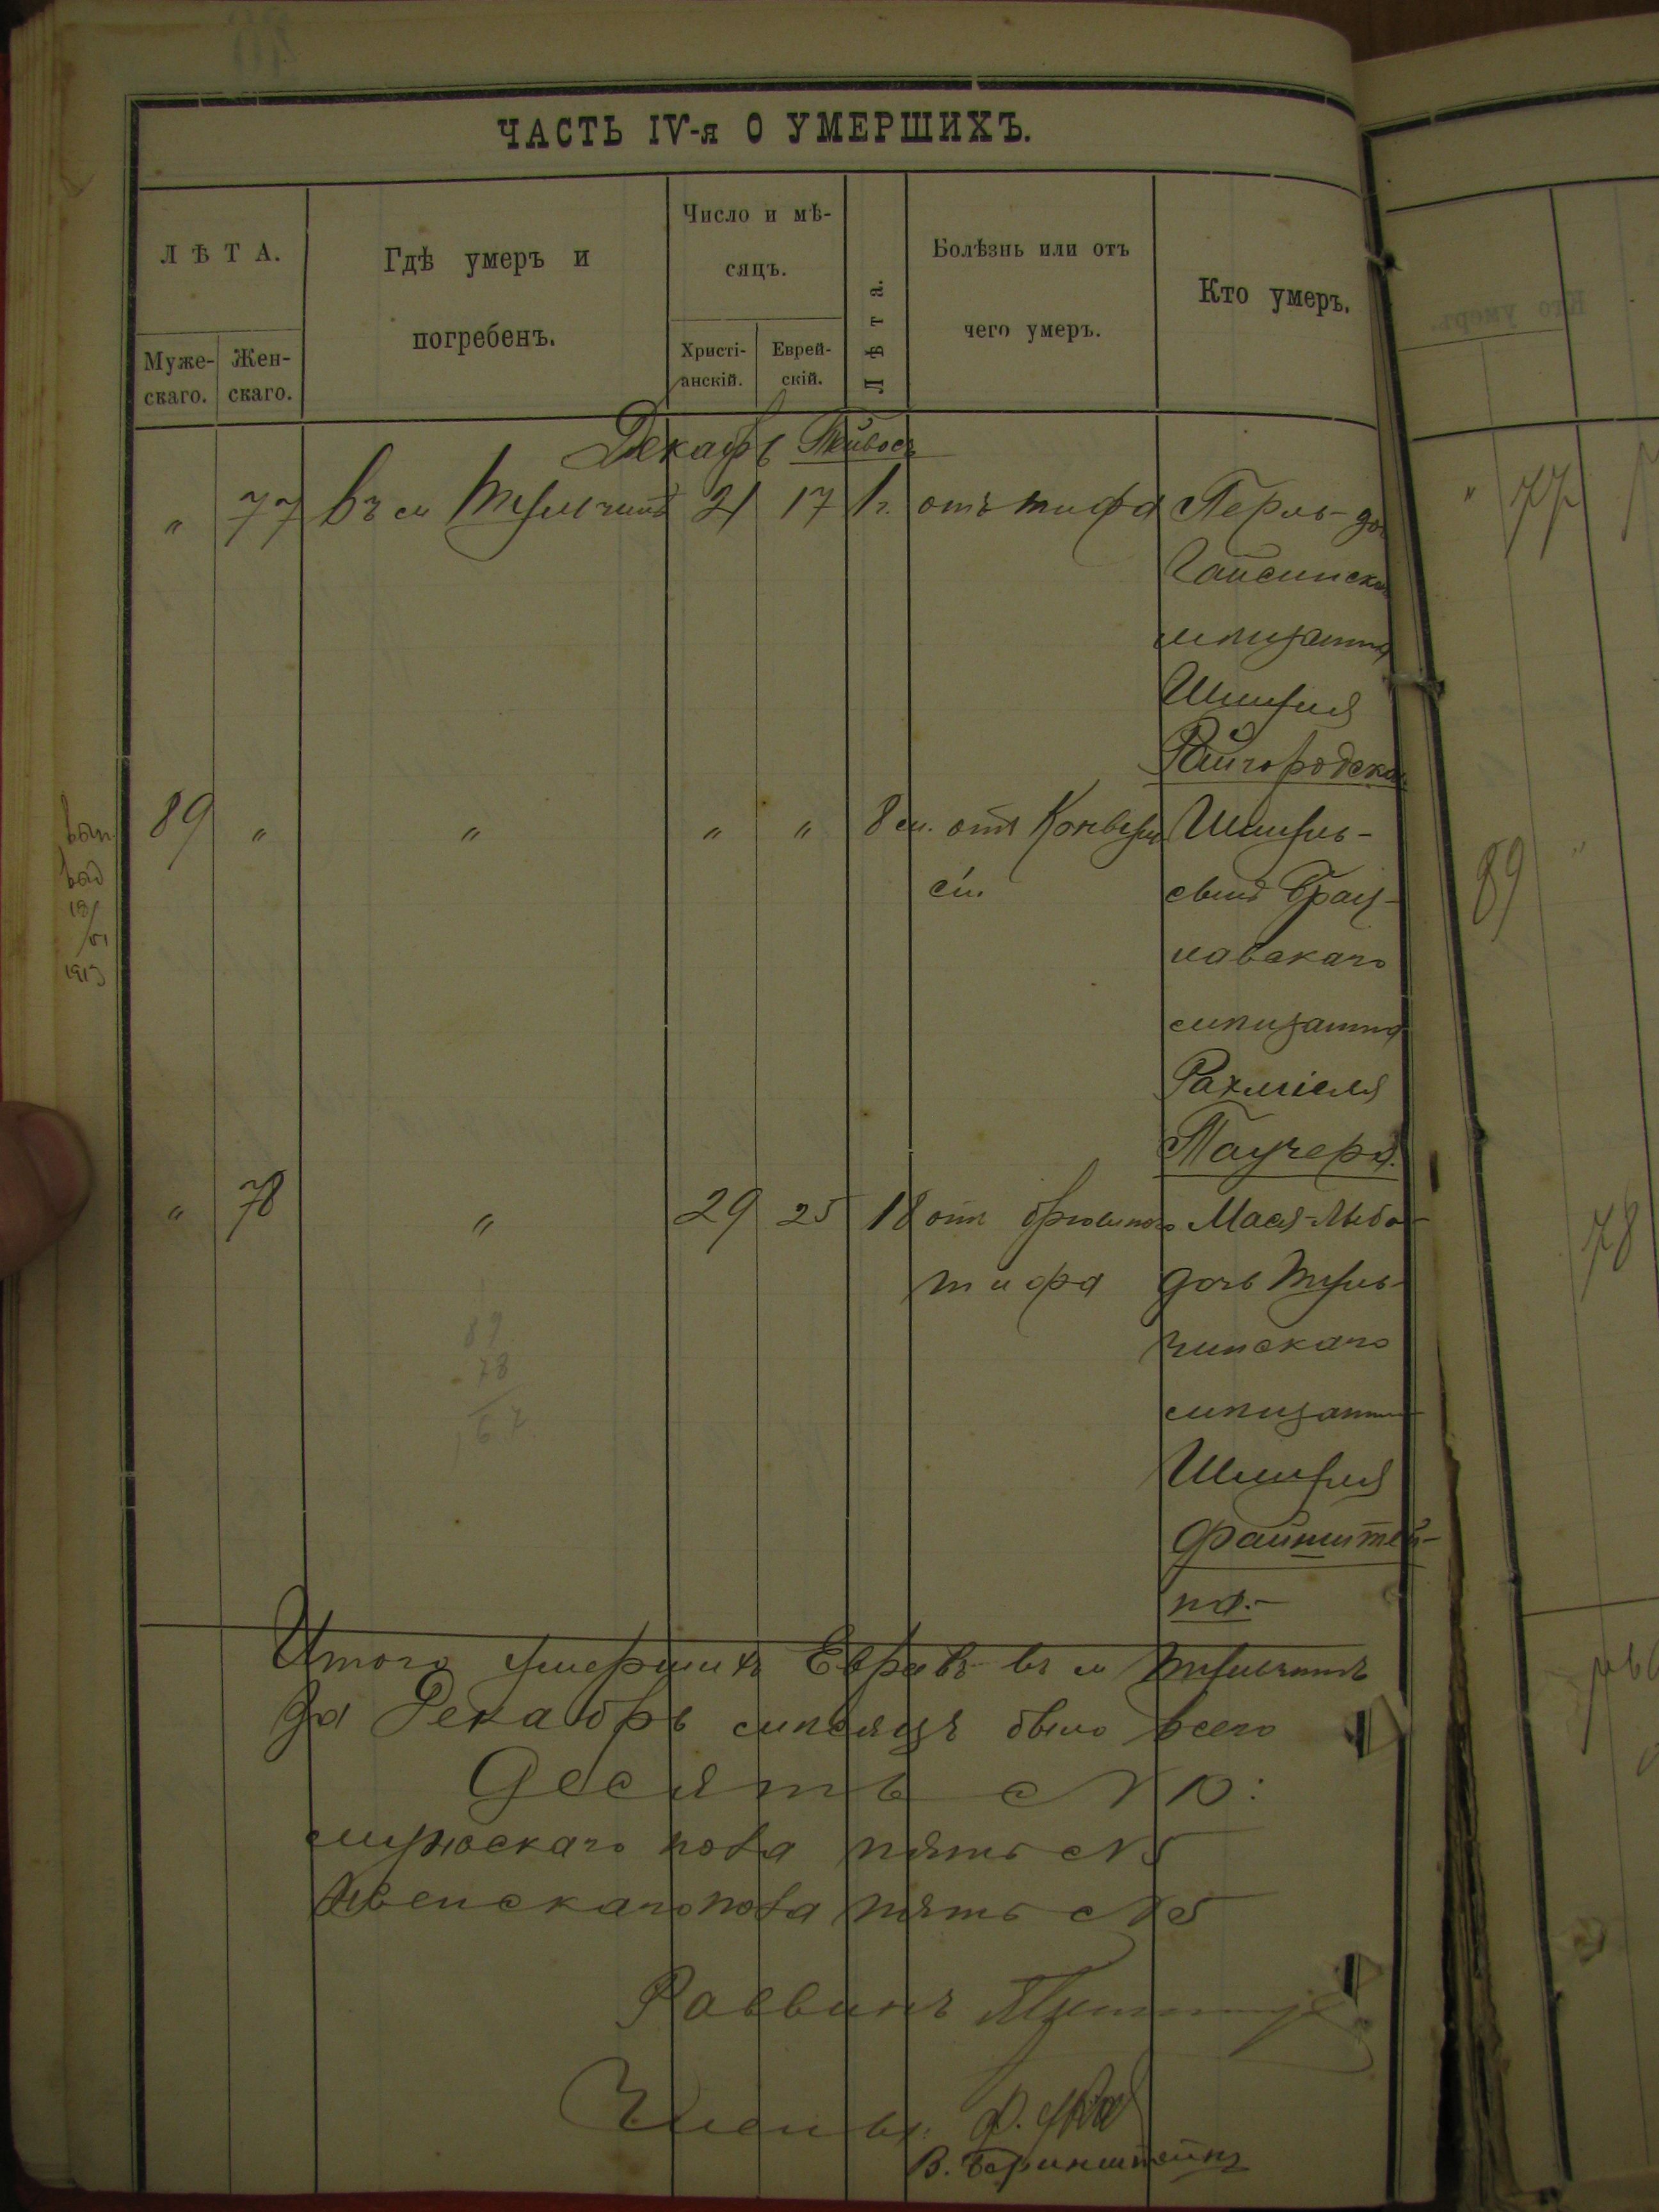 ЧАСТЬ IV-я О УМЕРШИХЪ.
ЛѢТА.
Муже-
скаго.
Жен-
скаго.
Гдѣ умеръ и
погребенъ.
Число и мѣ-
сяцъ.
Христі-
анскій.
Еврей-
скій.
Лѣта.
Болѣзнь или отъ
чего умеръ.
Кто умеръ.
Декабрь Тейвосъ
" 77 Въ м Тульчинѣ 21 17 1 г. отъ тифа Перль- до
Гайсинска
мѣщанина
Шмуля
Райгородска
89 " " " " 8 м. отъ Конвуль
сіи.
Шмуль-
сынъ Брац-
лавскаго
мѣщанина
Рахміеля
Таучера.
" 78 " 29 25 18 отъ брюшного
тифа
Мася-Люба-
дочь Туль-
чинскаго
мѣщанина
Шмуля
Файнштей-
на.-
89
78
Итого умершихъ Евреевъ въ м Тульчинѣ
За Декабрь мѣсяцъ было всего
Десять № 10:
мужескаго пола пять № 5
Женскаго пола пять № 5
Раввинъ
Члены:
В. Беринштейнъ
1913
" 77
89 "
78